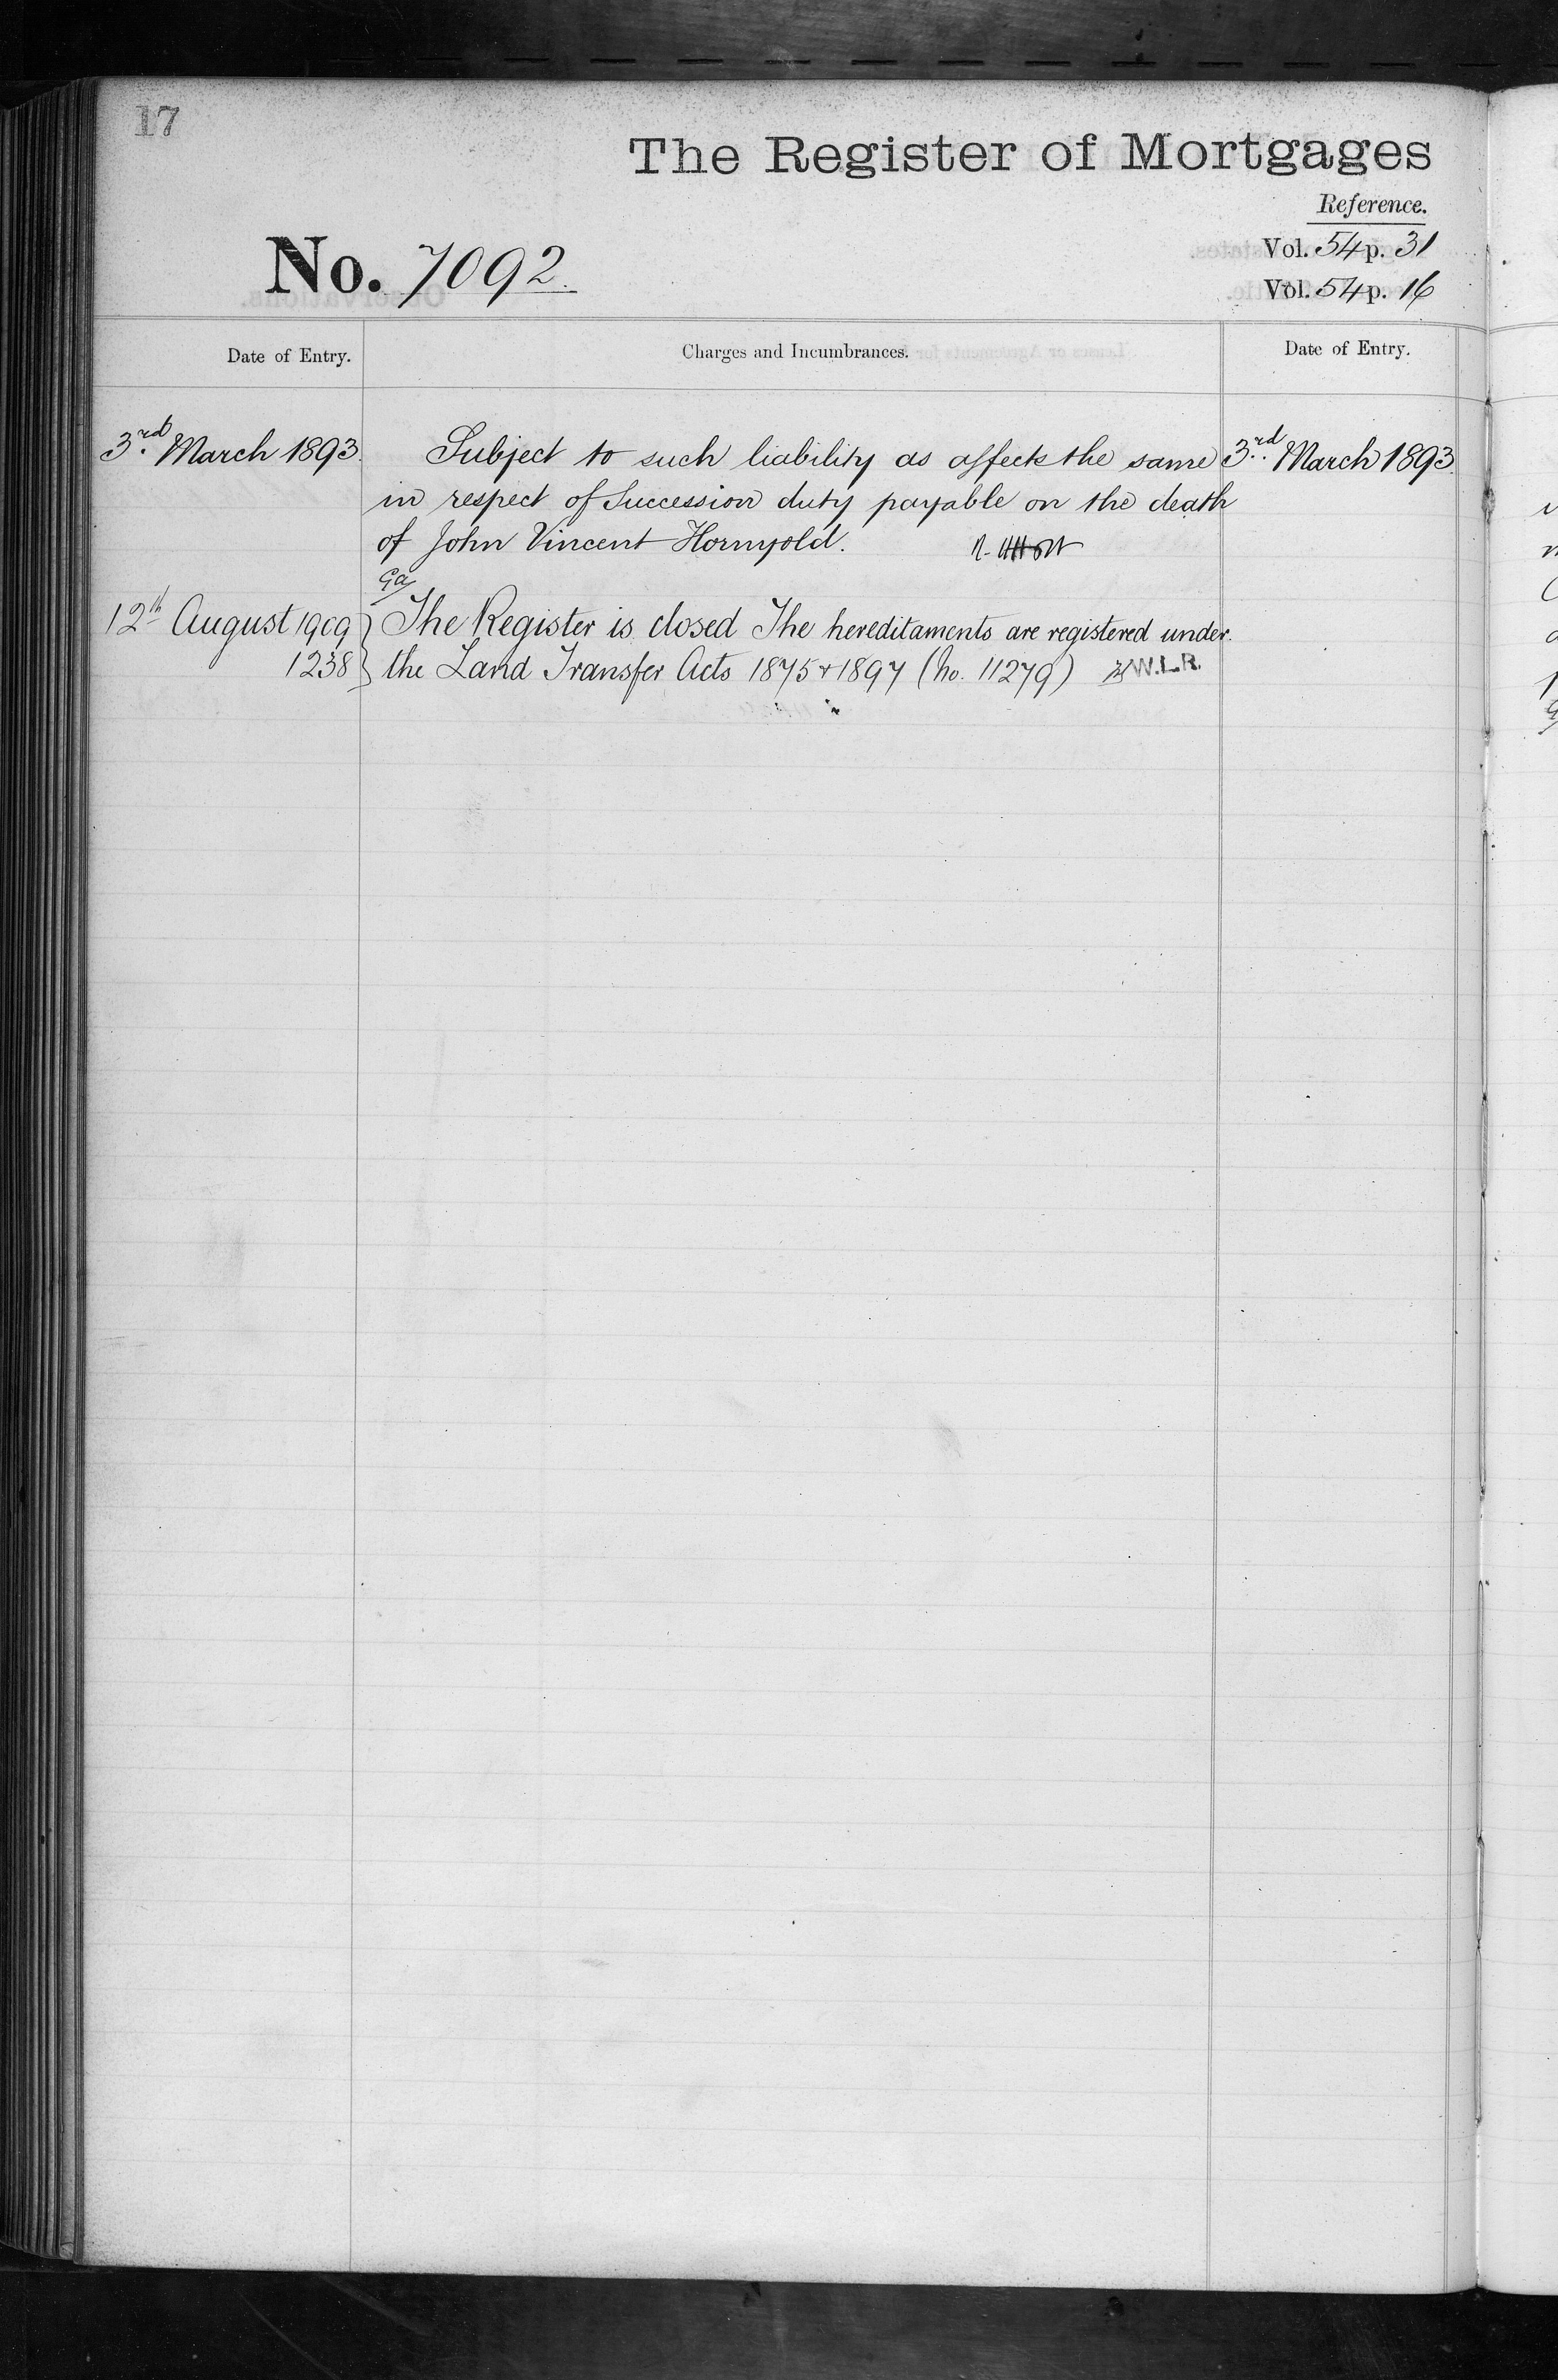 17
The Register of Mortgages
Reference.
No. 7092.
Vol. 54 p. 31
Vol. 54 p. 16
Date of Entry. Charges and Incumbrances. Date of Entry.
3rd. March 1893. Subject to such liability as affects the same 3rd. March 1893.
in respect of Succession duty payable on the death
of John Vincent Hornyold.
Ga
12th August 1909 } The Register is closed The hereditaments are registered under
1238 } the Land Transfer Acts 1875 & 1897 (No. 11279) W.L.R.